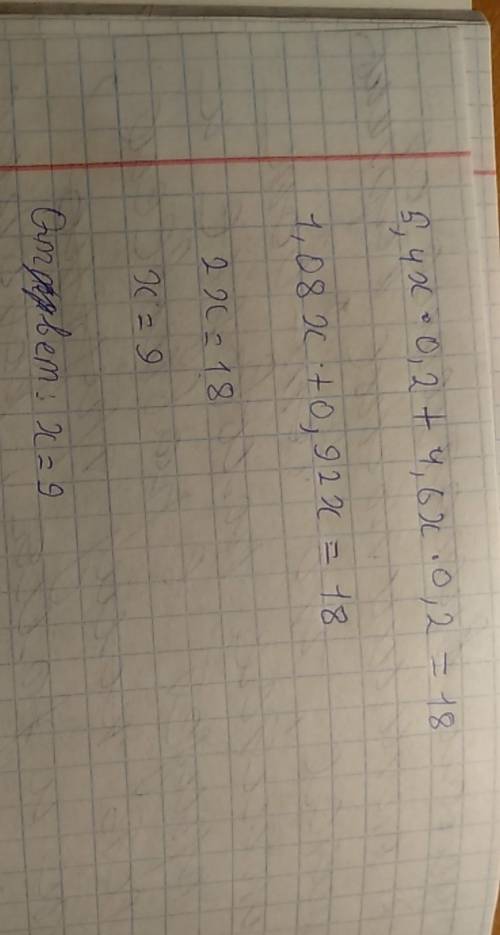 5,4x · 0,2 + 4,6x · 0,2 = 18
1,08x + 0,92x = 18
2x = 18
x = 9
Ответ: x = 9